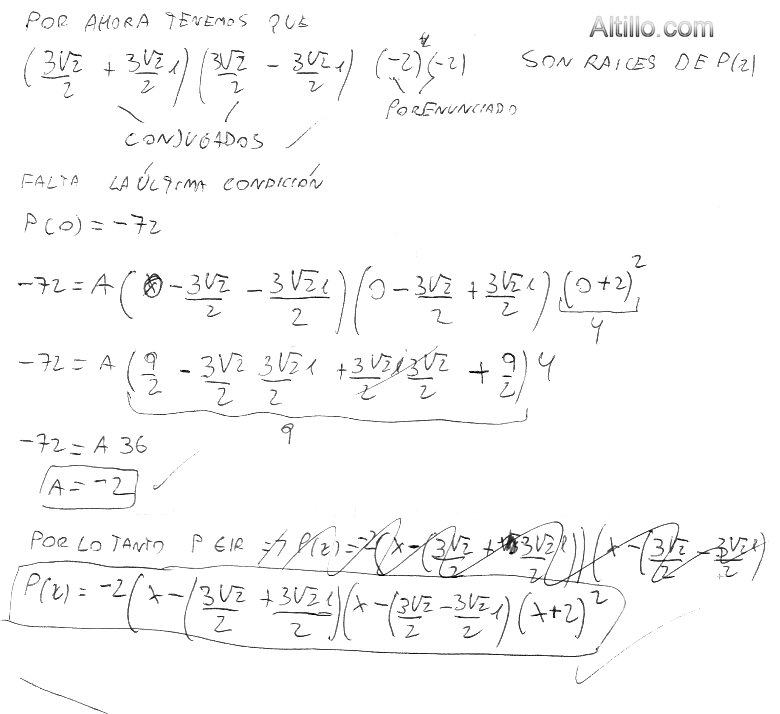 Altillo.com
POR AHORA TENEMOS QUE
(3√2/2 + 3√2 i/2) (3√2/2 - 3√2 i/2) (-2) y (-2) SON RAICES DE P(z)
CONJUGADOS POR ENUNCIADO
FALTA LA ÚLTIMA CONDICIÓN
P(0) = -72
-72 = A (0 - 3√2/2 - 3√2 i/2) (0 - 3√2/2 + 3√2 i/2) (0+2)²
4
-72 = A (9/2 - 3√2/2 3√2 i/2 + 3√2 i/2 3√2/2 + 9/2) 4
9
-72 = A 36
A = -2
POR LO TANTO P ∈ IR => P(z) = -2 (x - (3√2/2 + 3√2 i/2)) (x - (3√2/2 - 3√2 i/2)
P(z) = -2 (x - (3√2/2 + 3√2 i/2) (x - (3√2/2 - 3√2/2 i) (x+2)²